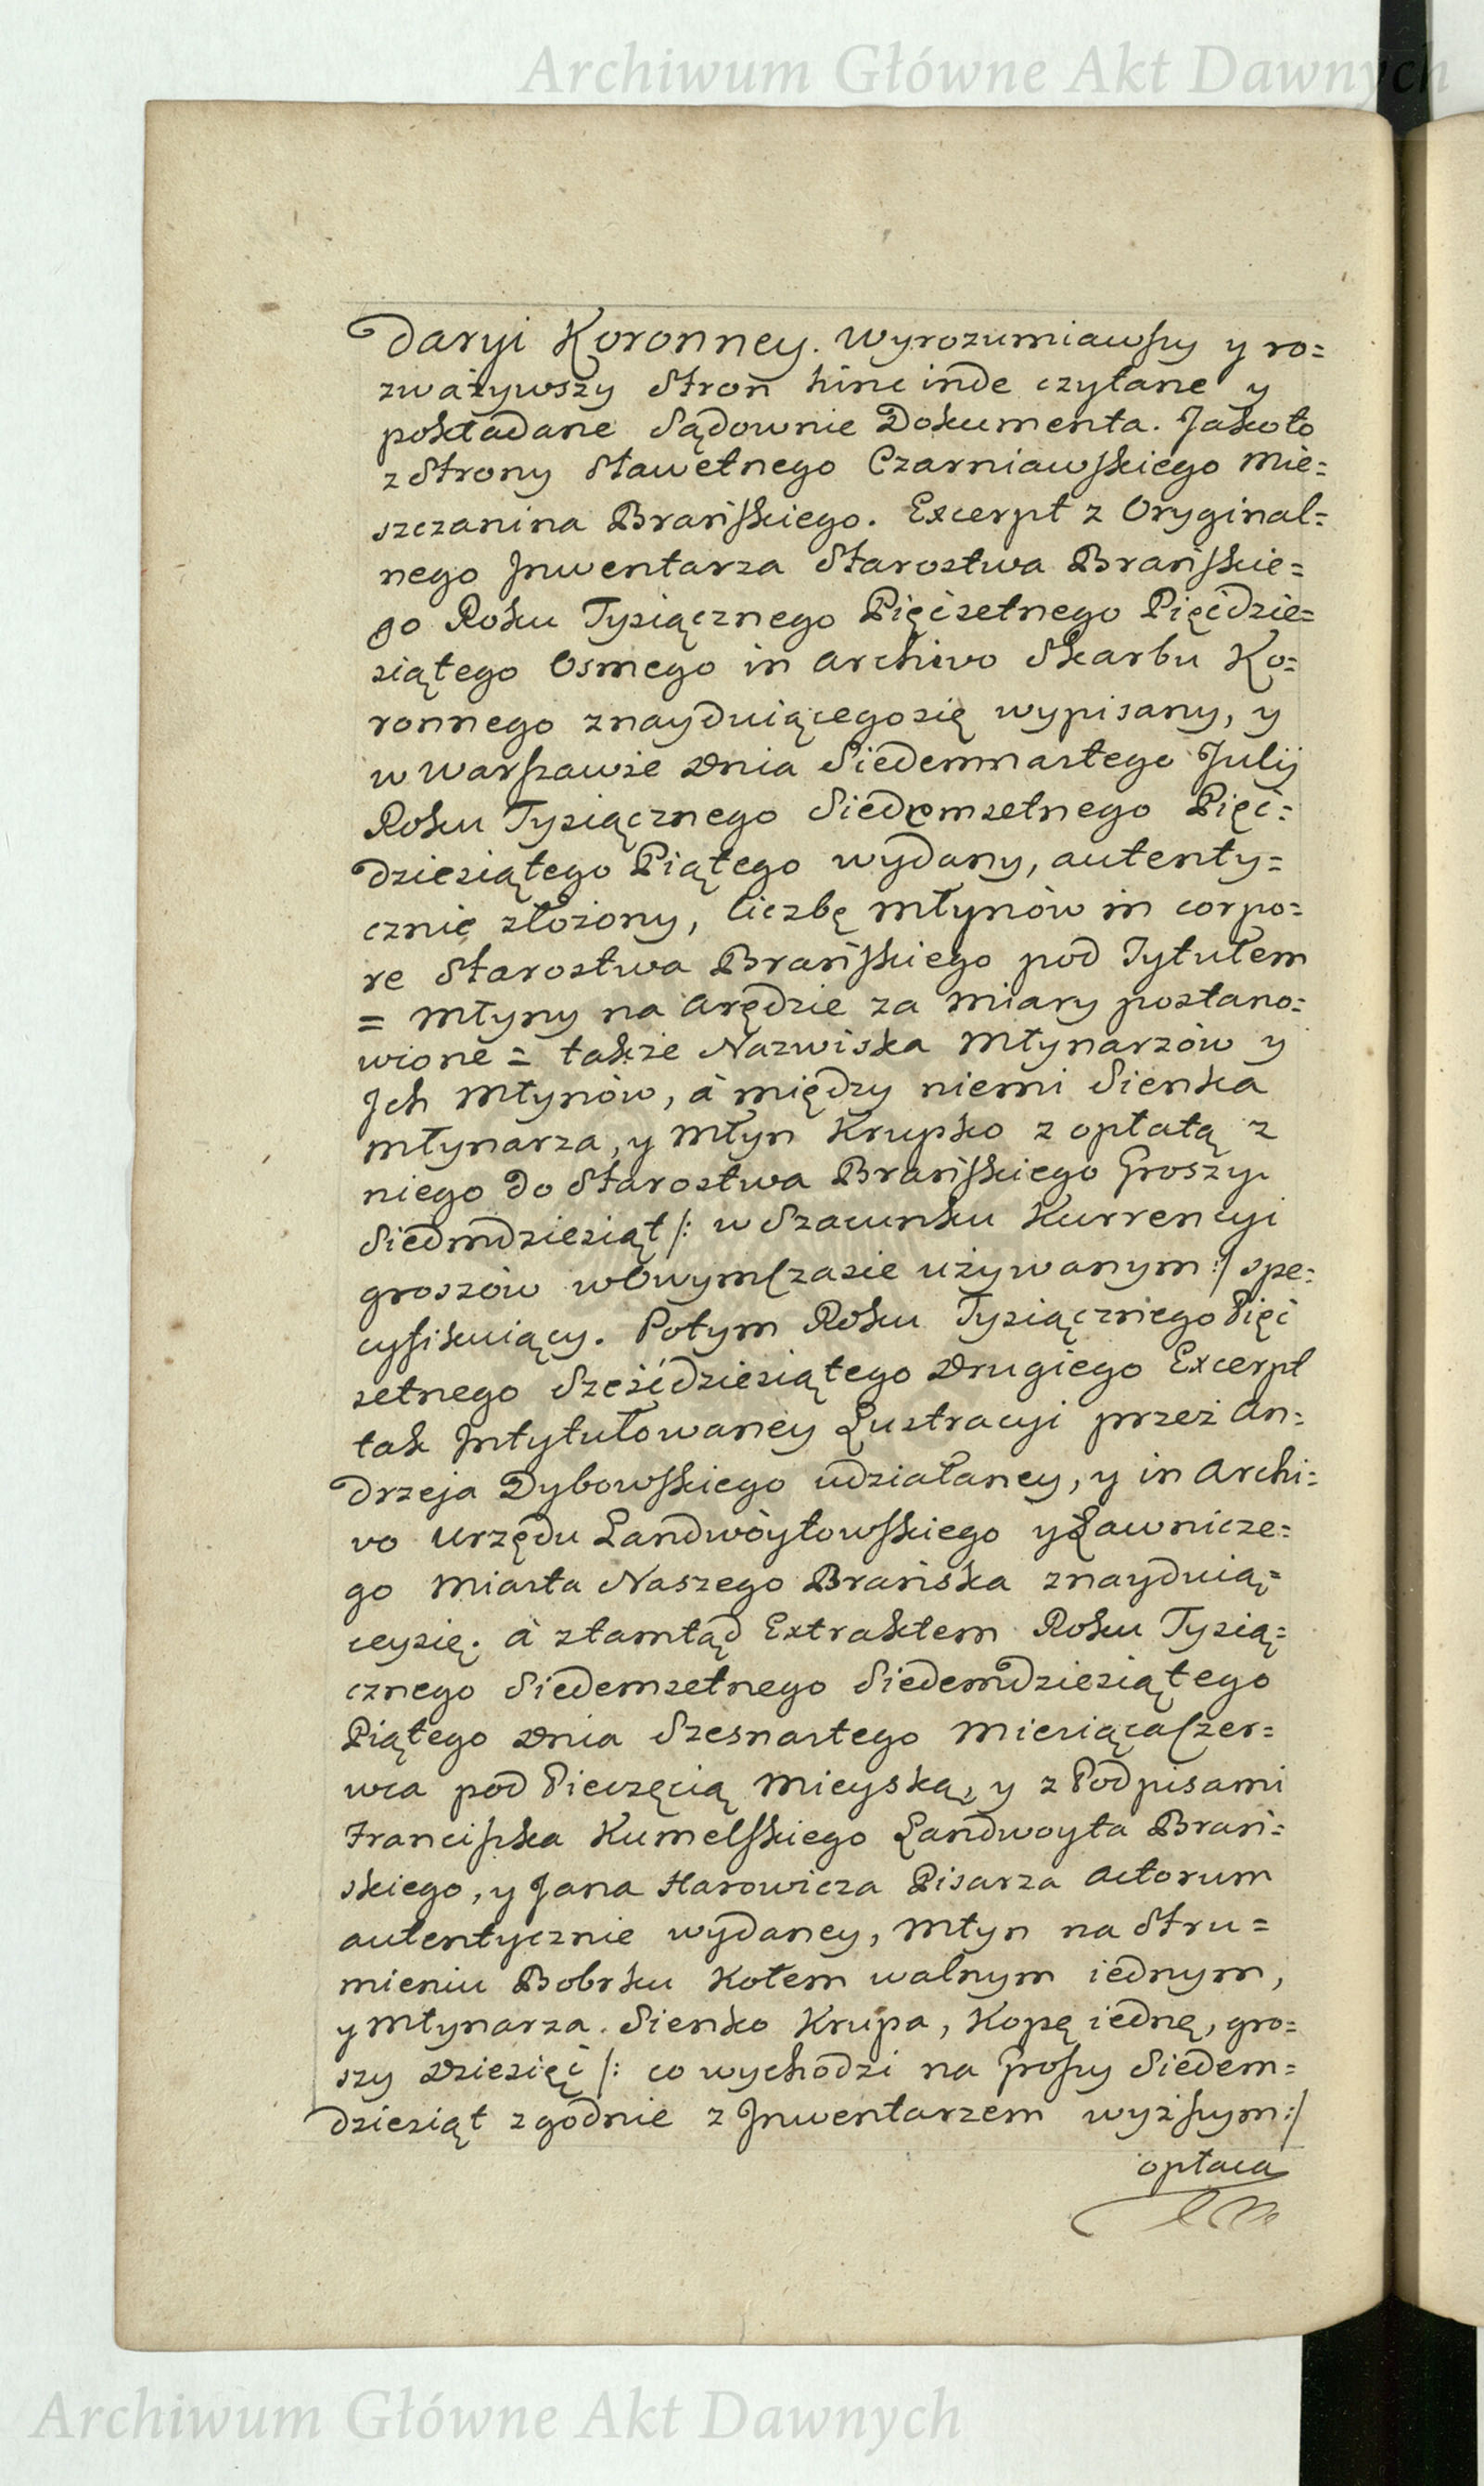 Archiwum Główne Akt Dawnych
daryi Koronney. Wyrozumiawszy y ro=
zważywszy Stron hinc inde czytane y
pokładane Sądownie Dokumenta. Jakoto
z Strony Sławetnego Czarniawskiego Mie=
szczanina Brańskiego. Excerpt z Oryginal=
nego Jnwentarza Starostwa Brańskie=
go Roku Tysiącznego Pięćsetnego Pięćdzie=
siątego Osmego in Archivo Skarbu Ko=
ronnego znayduiącegosię wypisany, y
w Warszawie Dnia Siedemnastego Julij
Roku Tysiącznego Siedemsetnego Pięć=
dziesiątego Piątego wydany, autenty=
cznie złożony, liczbę Młynów in corpo=
re Starostwa Brańskiego pod Tytułem
= Młyny na Arędzie za Miary postano=
wione = także Nazwiska Młynarzów y
Jch Młynów, à między niemi Sienka
Młynarza, y Młyn Krupko z opłatą z
niego do Starostwa Brańskiego Groszy.
Siedmdziesiąt /: w Szacunku Kurrencyi
groszów wOwymCzasie używanym :/ spe=
cyfikuiący. Potym Roku Tysiącznego Pięć
setnego Sześćdziesiątego Drugiego Excerpt
tak Jntytułowaney Lustracyi przez An=
drzeja Dybowskiego udziałaney, y in Archi=
vo Urzędu Landwóytowskiego yŁawnicze=
go Miasta Naszego Brańska znayduią=
ceysię. à ztamtąd Extraktem Roku Tysią=
cznego Siedemsetnego Siedemdziesiątego
Piątego Dnia Szesnastego MiesiącaCzer=
wca pod Pieczęcią Mieyską, y z Podpisami
Franciszka Kumelskiego Landwoyta Brań=
skiego, y Jana Harowicza Pisarza Actorum
autentycznie wydaney, Młyn na Stru=
mieniu Bobrku Kołem walnym iednym,
y Młynarza. Sienko Krupa, Kopę iednę, gro=
szy Dziesięć /: co wychodzi na Groszy Siedem=
dziesiąt zgodnie z Jnwentarzem wyższym :/
opłaca
Archiwum Główne Akt Dawnych